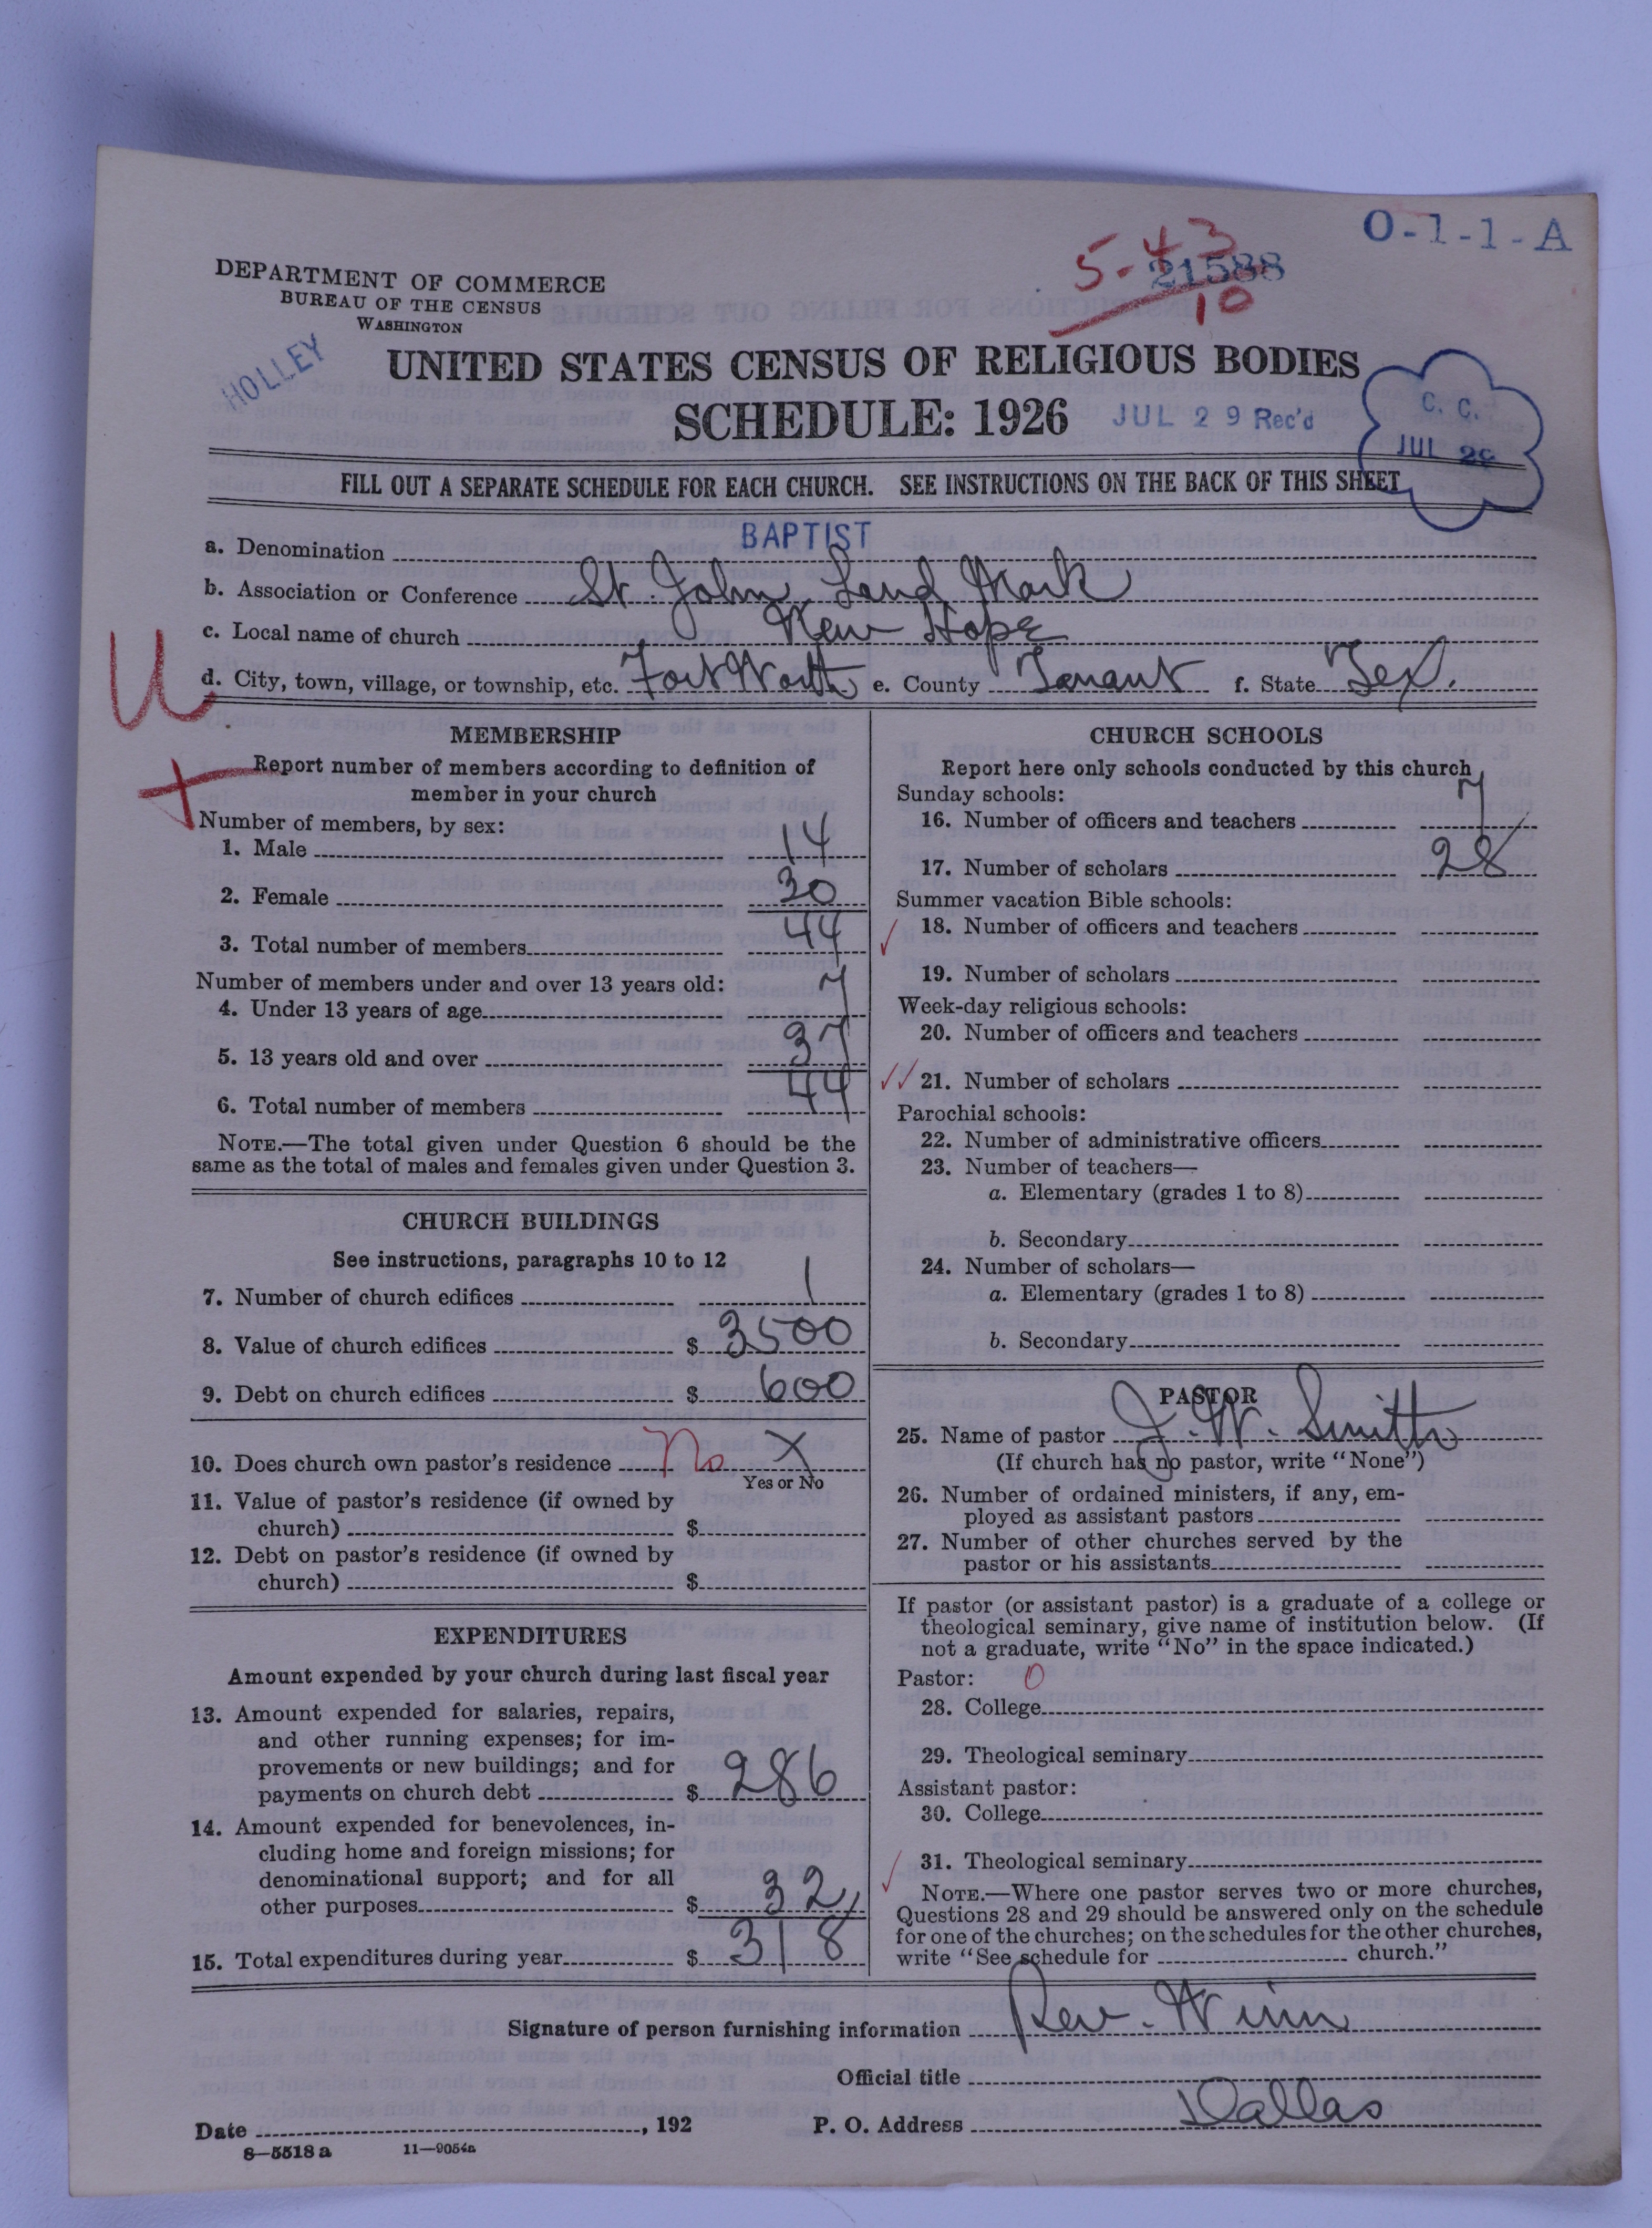 O-1-1-A
5-43
21588
10
DEPARTMENT OF COMMERCE
BUREAU OF THE CENSUS
WASHINGTON
HOLLEY
UNITED STATES CENSUS OF RELIGIOUS BODIES
SCHEDULE: 1926 JUL 29 Rec'd
C. C.
JUL 29
FILL OUT A SEPARATE SCHEDULE FOR EACH CHURCH. SEE INSTRUCTIONS ON THE BACK OF THIS SHEET
a. Denomination BAPTIST
b. Association or Conference St. John Land Mark
c. Local name of church New Hope
U
d. City, town, village, or township, etc. Fort Worth e. County Tarrant f. State Tex.
MEMBERSHIP
Report number of members according to definition of
member in your church
Number of members, by sex:
1. Male 14
2. Female 30
3. Total number of members 44
Number of members under and over 13 years old:
4. Under 13 years of age 7
5. 13 years old and over 37
6. Total number of members 44
NOTE.—The total given under Question 6 should be the
same as the total of males and females given under Question 3.
CHURCH BUILDINGS
See instructions, paragraphs 10 to 12
7. Number of church edifices 1
8. Value of church edifices $ 3500
9. Debt on church edifices $ 600
10. Does church own pastor's residence No X
Yes or No
11. Value of pastor's residence (if owned by
church) $
12. Debt on pastor's residence (if owned by
church) $
EXPENDITURES
Amount expended by your church during last fiscal year
13. Amount expended for salaries, repairs,
and other running expenses; for im-
provements or new buildings; and for
payments on church debt $ 286
14. Amount expended for benevolences, in-
cluding home and foreign missions; for
denominational support; and for all
other purposes $ 32
15. Total expenditures during year $ 318
CHURCH SCHOOLS
Report here only schools conducted by this church
Sunday schools:
16. Number of officers and teachers 7
17. Number of scholars 28
Summer vacation Bible schools:
18. Number of officers and teachers
19. Number of scholars
Week-day religious schools:
20. Number of officers and teachers
21. Number of scholars
Parochial schools:
22. Number of administrative officers
23. Number of teachers—
a. Elementary (grades 1 to 8)
b. Secondary
24. Number of scholars—
a. Elementary (grades 1 to 8)
b. Secondary
PASTOR
25. Name of pastor J. W. Smith
(If church has no pastor, write "None")
26. Number of ordained ministers, if any, em-
ployed as assistant pastors
27. Number of other churches served by the
pastor or his assistants
If pastor (or assistant pastor) is a graduate of a college or
theological seminary, give name of institution below. (If
not a graduate, write "No" in the space indicated.)
Pastor: 0
28. College
29. Theological seminary
Assistant pastor:
30. College
31. Theological seminary
NOTE.—Where one pastor serves two or more churches,
Questions 28 and 29 should be answered only on the schedule
for one of the churches; on the schedules for the other churches,
write "See schedule for church."
Signature of person furnishing information Rev. Winn
Official title
Date , 192 P. O. Address Dallas
8—5518a 11—9054a